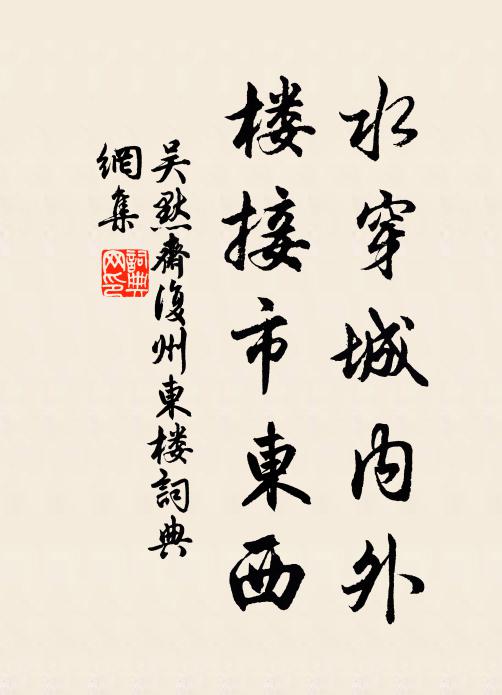 水穿城内外
楼接市東西
吴默齋復州東楼詞典
網集
詞典
网印